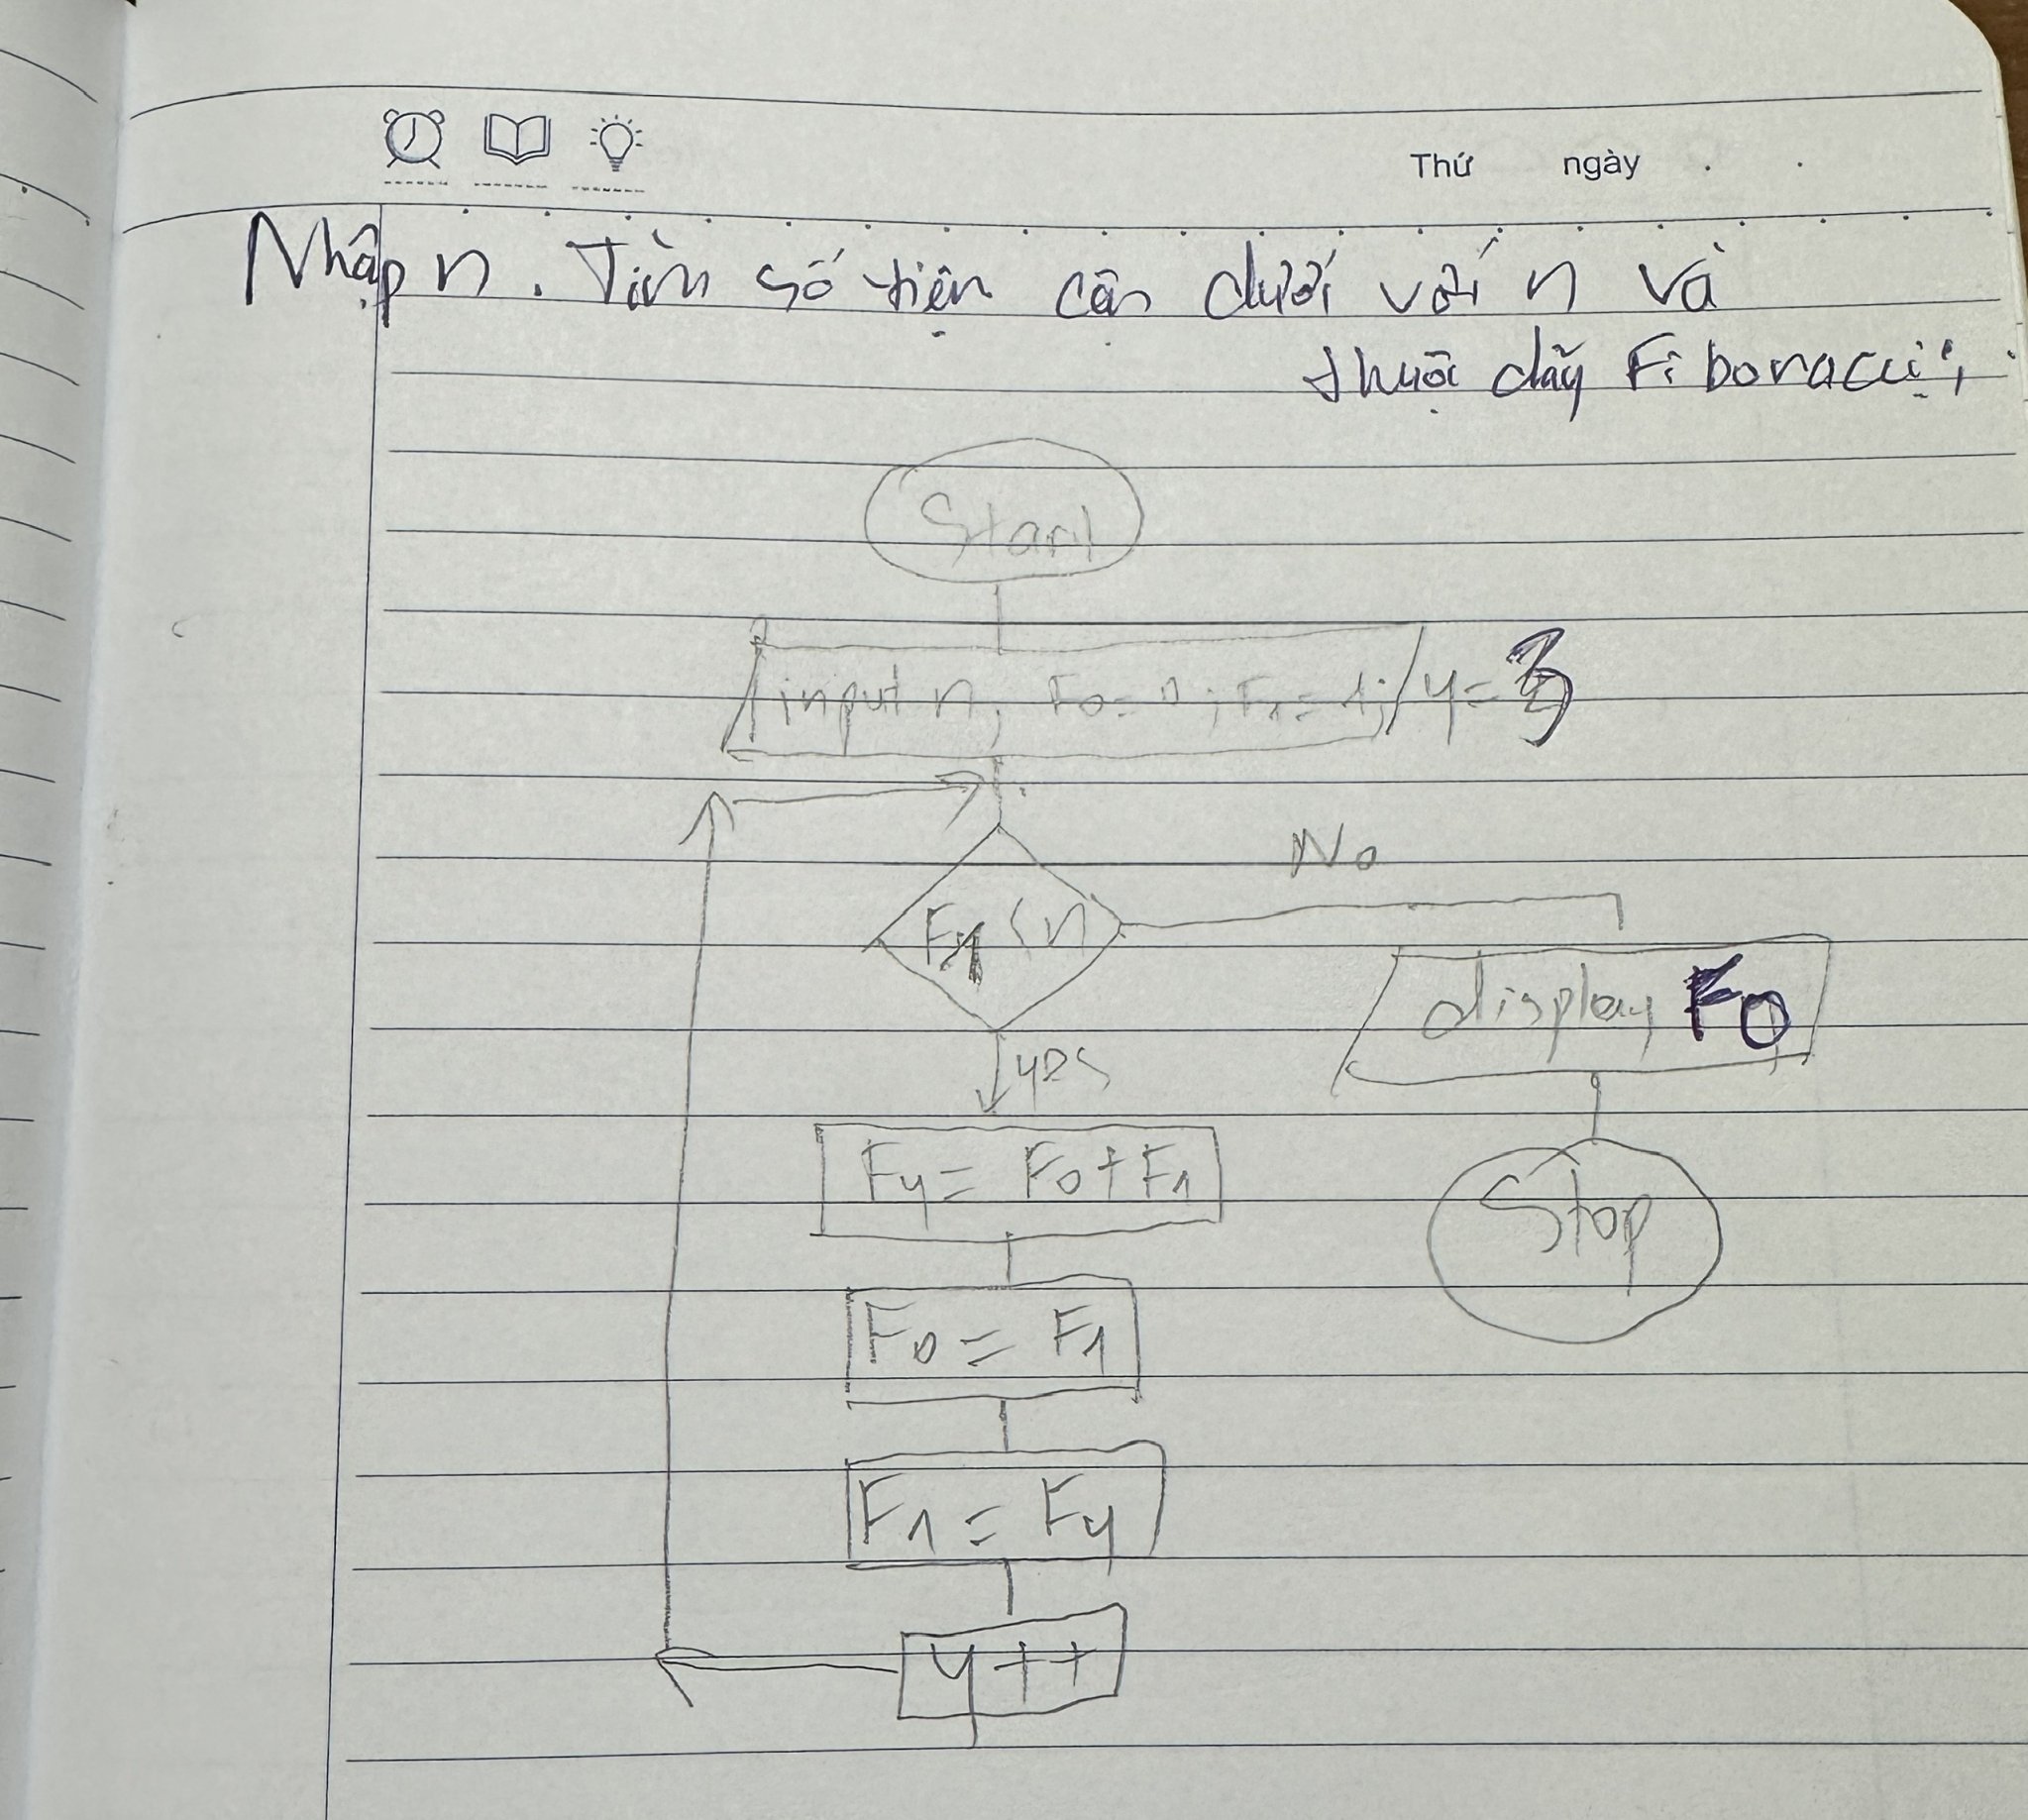 Thứ ngày
Nhập n. Tìm số tiện cận dưới với n và
thuộc dãy Fibonacci;
Start
input n; F0=0; F1=1; y=3
F1<n
No
display F0
yes
Fy= F0+F1
Stop
F0 = F1
F1 = Fy
y++